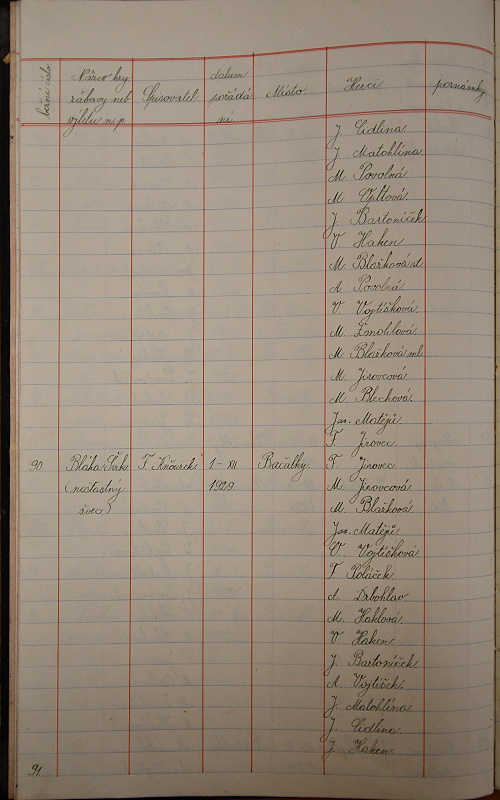 běžné číslo
Název hry
zábavy neb
výletu n.p.
Spisovatel
datum
pořádá
ní
Místo
Herci
poznámky
J. Cidlina
J. Matoklína
M. Povolná
M. Vyltová
J. Bartoníček
V. Haken
M. Blažková st.
A. Povolná
V. Vojtíšková
M. Zmolilová
M. Blažková ml.
M. Jirovcová
M. Blechová
Jar. Matějů
F. Jirovec
90 Bláha F. 1- XII. Bačalky F. Jirovec
(nešťastný 1929 M. Jirovcová
švec) M. Blažková
Jar. Matějů
V. Vojtíšková
F. Poláček
A. Drbohlav
M. Haklová
V. Haken
J. Bartoníček
A. Vojtíšek
J. Matoklína
J. Cidlina
J. Haken
91